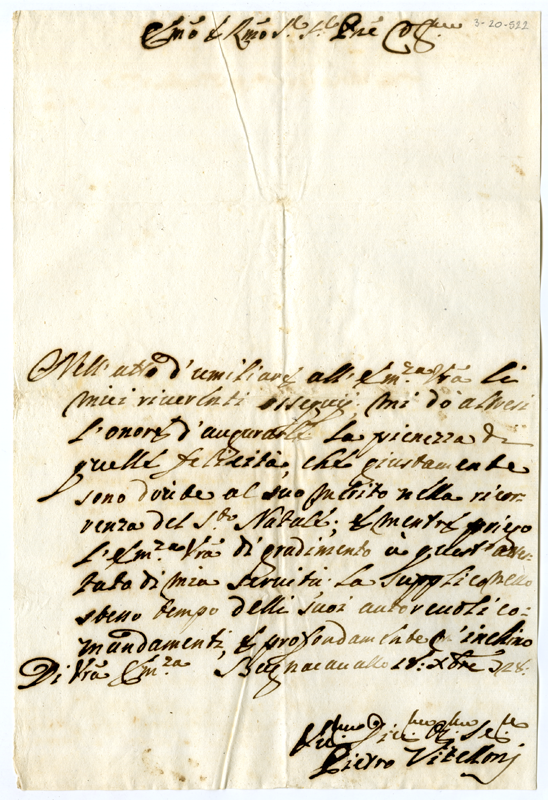 3-20-522
Emo e Rmo Sr. Sr. Pne
Nell'atto d'umiliare all'Emza Vra li
miei riverenti ossequij, mi dò altresi
l'onore d'augurarle la pienezza di
quelle felicità, che giustamente
sono dovute al suo merito nella ricor-
renza del Sto Natale; e mentre priego
l'Emza Vra di gradimento a quest'attes-
tato di mia servitù. La supplico nello
stesso tempo delli suoi autorevoli co-
mandamenti, e profondamente m'inchino
Di Vra Emza Bagnacavallo 18: Xbre
Pietro Vitelloni